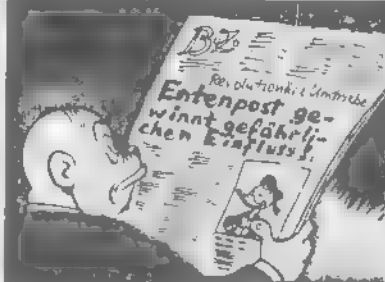 BZ.
Revolutionäre Umtriebe
Entenpost ge-
winnt gefährli-
chen Einfluss!